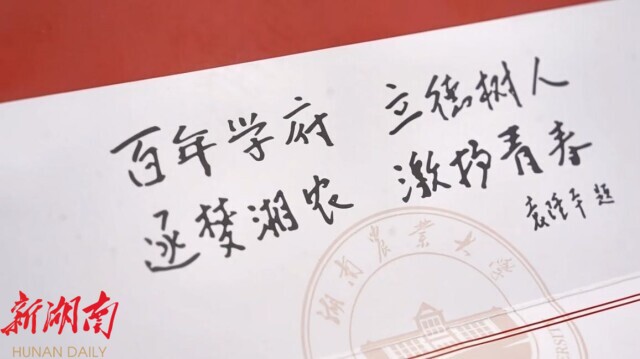 百年学府 立德树人
逐梦湘农 激扬青春
袁隆平题
湖南农业大学
新湖南
HUNAN DAILY